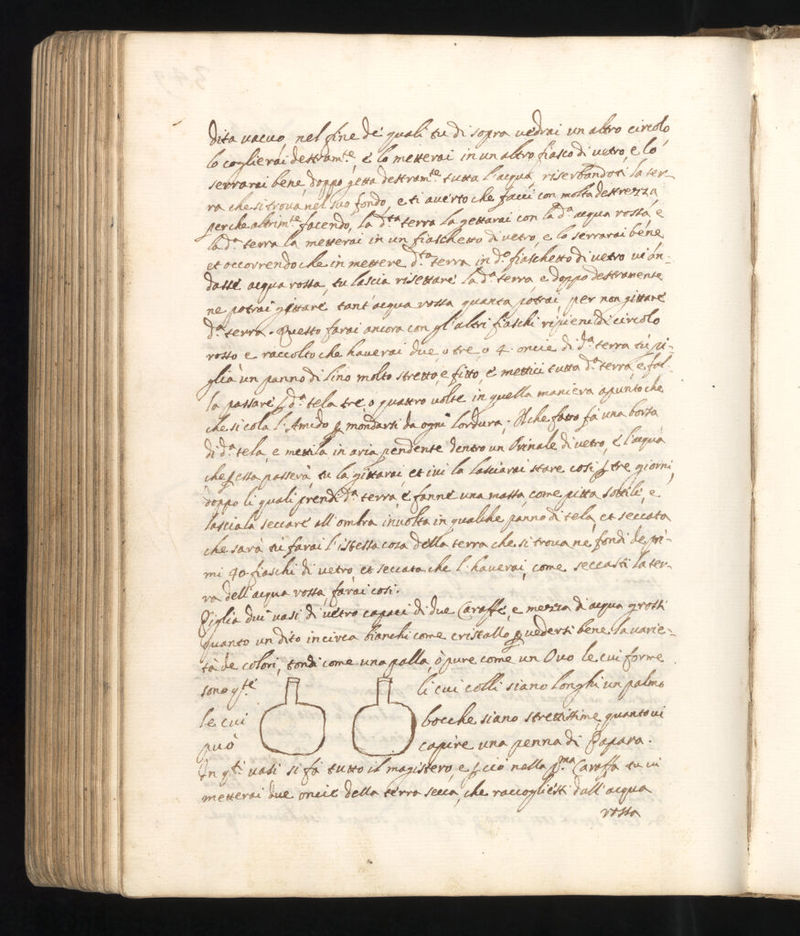 dita vacuo, nel fine de quali tu di sopra vedrai un altro circolo
lo coglierai destram.te, è lo metterai in un altro fiasco di vetro, e lo
serrarai bene, doppo getta destram.te tutta l'acqua riserbandoti la ter-
ra che si trova nel suo fondo, e ti averto che facci con molta destrezza,
perche altrim.te facendo, la d.ta terra la gettarai con la d.a acqua rossa, e
la d.a terra la metterai in un fiaschetto di vetro, e lo serrarai bene,
et occorrendo che in mettere d.ta terra in d.o fiaschetto di vetro vi an-
dasse acqua rossa, tu lascia risettare la d.a terra e doppo destramente
ne potrai gittare tant'acqua rossa quanta potrai, per non gittare
d.a terra. Questo farai ancora con gl'altri fiaschi ripieni di circolo
rosso e raccolto che haverai due, o tre, o 4. oncie di d.a terra tù pi-
glia un panno di lino molto stretto, e fitto, è mettici tutta d.a terra, e fal-
la passare p d.a tela tre, o quattro volte in quella maniera apunto che
che si cola l'Amido p mondarti da ogni lordura. Il che fatto fà una borsa
di d.a tela, e mettila in aria pendente dentro un Orinale di vetro, è l'acqua
che p essa passerà, tu la gittarai, et ivi la lasciarai stare così p tre giorni,
doppo li quali prendi d.a terra, è fanne una massa, come pitta sottile, e
lasciala seccare all'ombra involta in qualche panno di tela, et seccata
che sarà tù farai l'istessa cosa della terra che si trova ne fondi de pri-
mi 40. fiaschi di vetro, et seccata che l'haverai, come seccasti la ter-
ra dell'acqua rossa, farai così.
Piglia dui vasi di vetro capaci di due Caraffe, e mezza di acqua grossi
quanto un dito in circa bianchi come cristallo p vederti bene la varie-
tà de colori, tondi come una palla, ò pure come un Ovo le cui forme
sono q.te li cui colli siano longhi un palmo
le cui bocche siano strettissime, quanto vi
può capire una penna di Papara.
In q.ti vasi si fà tutto il magistero, e p ciò nella p.ma Caraffa tu vi
metterai due oncie della terra secca, che raccogliesti dall'acqua
rossa